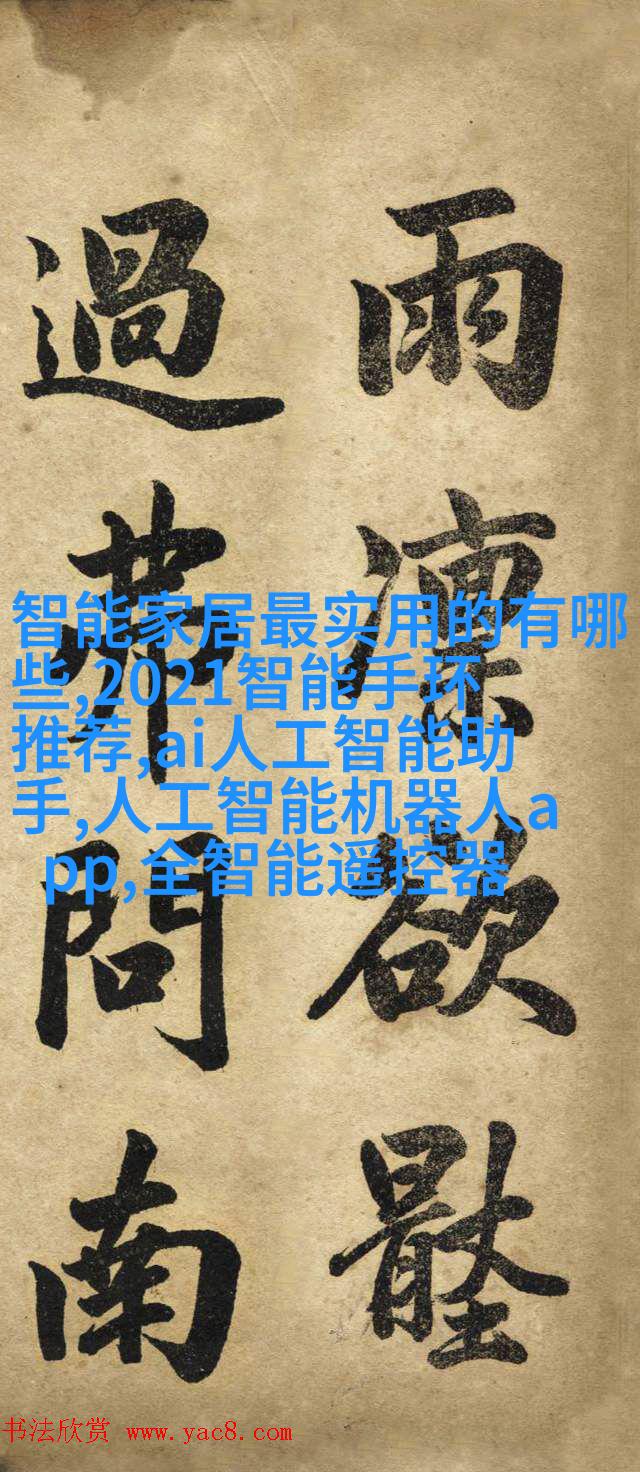 雨凛欲
過問南
智能家居最实用的有哪
些,2021智能手环
推荐,ai人工智能助
手,人工智能机器人a
pp,全智能遥控器
书法欣赏 www.yac8.com